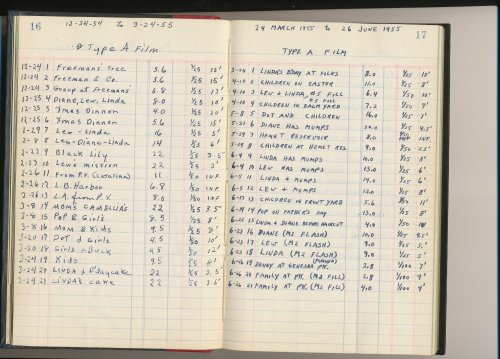 16
12-24-54 to 3-24-55
Type A Film
12-24 1 Freemans' Tree 5.6 1/25 15'
12-24 2 Freeman & Co. 5.6 1/25 15'
12-24 3 Group at Freemans' 6.8 1/25 13'
12-25 4 Diane, Lew, Linda 8.0 1/25 10'
12-25 5 Xmas Dinner 4.0 1/25 20'
12-25 6 Xmas Dinner 5.6 1/25 15'
1-29 7 Lew - Linda 16 1/25 5'
2-8 8 Lew-Diane-Linda 14 1/25 6'
2-23 9 Black Lily 22 3.5'
2-23 10 Lew's mission 22 3'
2-26 11 From P.V. (Catalina) 11 INF.
2-26 12 L.B. Harbor 6.8 INF.
2-26 13 L.A. from P.V. 8.0 INF
3-8 14 Moms Camellias 22 3.5'
3-8 15 Pop & Girls 8.5 8'
3-8 16 Mom & Kids 9.5 8'
3-20 17 Dot & Girls 4.5 10'
3-20 18 Girls & Buck 4.5 12'
3-24 19 Kids 9.5 8'
3-24 20 Linda & B'daycake 22 3.5'
3-24 21 Linda's cake 22 3.5'
17
24 March 1955 to 26 June 1955
Type A Film
3-24 1 Linda's B'day at Folks 8.0 1/25 10'
4-10 2 Children on Easter 11.0 1/25 8'
4-10 3 Lew & Linda, #5 Fill 6.4 1/50 10'
#5 Fill
4-10 4 Children in back yard 7.2 1/50 9'
5-8 5 Dot and Children 16.0 1/25 7'
5-22 6 Diane has mumps 10.0 1/25 4.5'
5-29 7 Hemet Reservoir 8.0 INF
5-29 8 Children at Hemet Res. 9.0 1/50 25'
6-4 9 Linda has mumps 10.0 1/25 8'
6-4 10 Lew has mumps 13.0 1/25 6'
6-5 11 Linda & mumps 14.0 1/25 6'
6-5 12 Lew & mumps 12.0 1/25 8'
6-13 13 Children in front yard 5.6 1/50 11'
6-19 14 Pop on Father's Day 13.0 1/25 8'
6-22 15 Linda & Diane before haircut 4.0 1/50
6-23 16 Diane (M2 Flash) 10.0 1/25 9.5'
6-23 17 Lew (M2 Flash) 9.0 1/25
6-23 18 Linda (M2 Flash) 9.0 1/25 5'
6-26 19 Denny at Genesee Pk. 2.8 1/100 7'
6-26 20 Family at Pk. (M2 Fill) 2.8 1/100 9'
6-26 21 Family at Pk. (M2 Fill) 4.0 1/100 9'